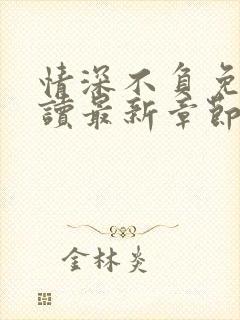 情深不負免
讀最新章節
金林炎